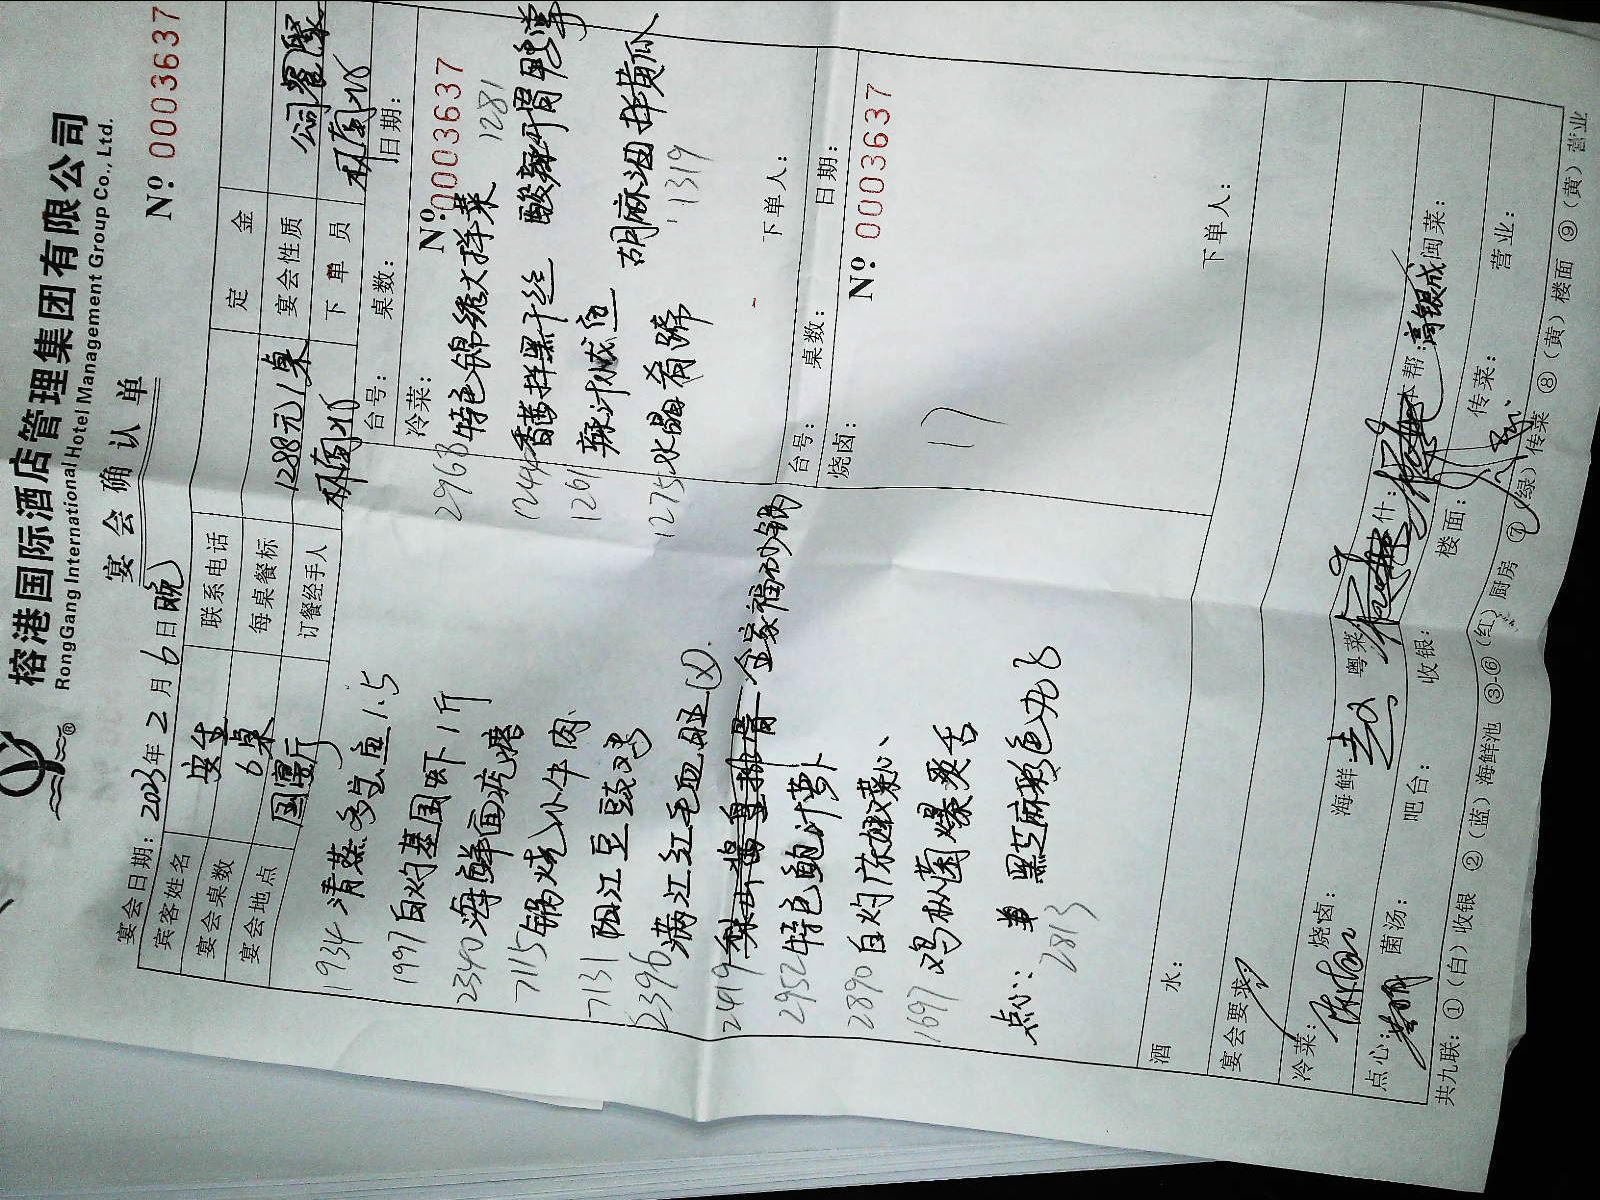 榕港国际酒店管理集团有限公司
RongGang International Hotel Management Group Co., Ltd.
®
宴会确认单
Nº 0003637
宴会日期: 2023年2月6日晚
宾客姓名 安生 联系电话 定金
宴会桌数 6桌 每桌餐标 1288元/桌 宴会性质 公司餐聚
宴会地点 国宴厅 订餐经手人 下单员
1934 清蒸多宝鱼 1.5
1997 白灼基围虾 1斤
2340 海鲜面疙瘩
7115 锅烧小牛肉
7131 阳江豆豉鸡
2396 满江红毛血旺(大).
2419 全家福砂锅
2952 特色鲍汁萝卜
2890 白灼广东菜心
1697 鸡枞菌爆
点心: 黑芝麻彩色丸子
2813
台号: 桌数: 日期:
冷菜: Nº 0003637
2963 特色锦绣大拌菜 1281
1244 香茜拌黑干丝 酸辣
1261 辣汁
1275 水晶肴蹄 胡麻油拌黄瓜
1319
下单人:
台号: 桌数: 日期:
烧卤: Nº 0003637
17
下单人:
酒水:
宴会要求:
冷菜: 烧卤: 海鲜: 粤菜: 什: 本帮: 高银成 闽菜:
点心: 菌汤: 吧台: 收银: 楼面: 传菜: 营业:
共九联: ①(白)收银 ②(蓝)海鲜池 ③-⑥(红)厨房 ⑦(绿)传菜 ⑧(黄)楼面 ⑨(黄)营业